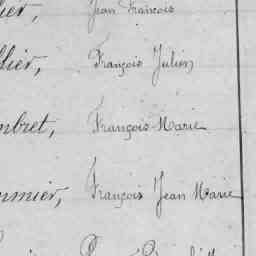 lier, Jean François
llier, François Julien
mbret, François-Marie
nmier, François Jean Marie